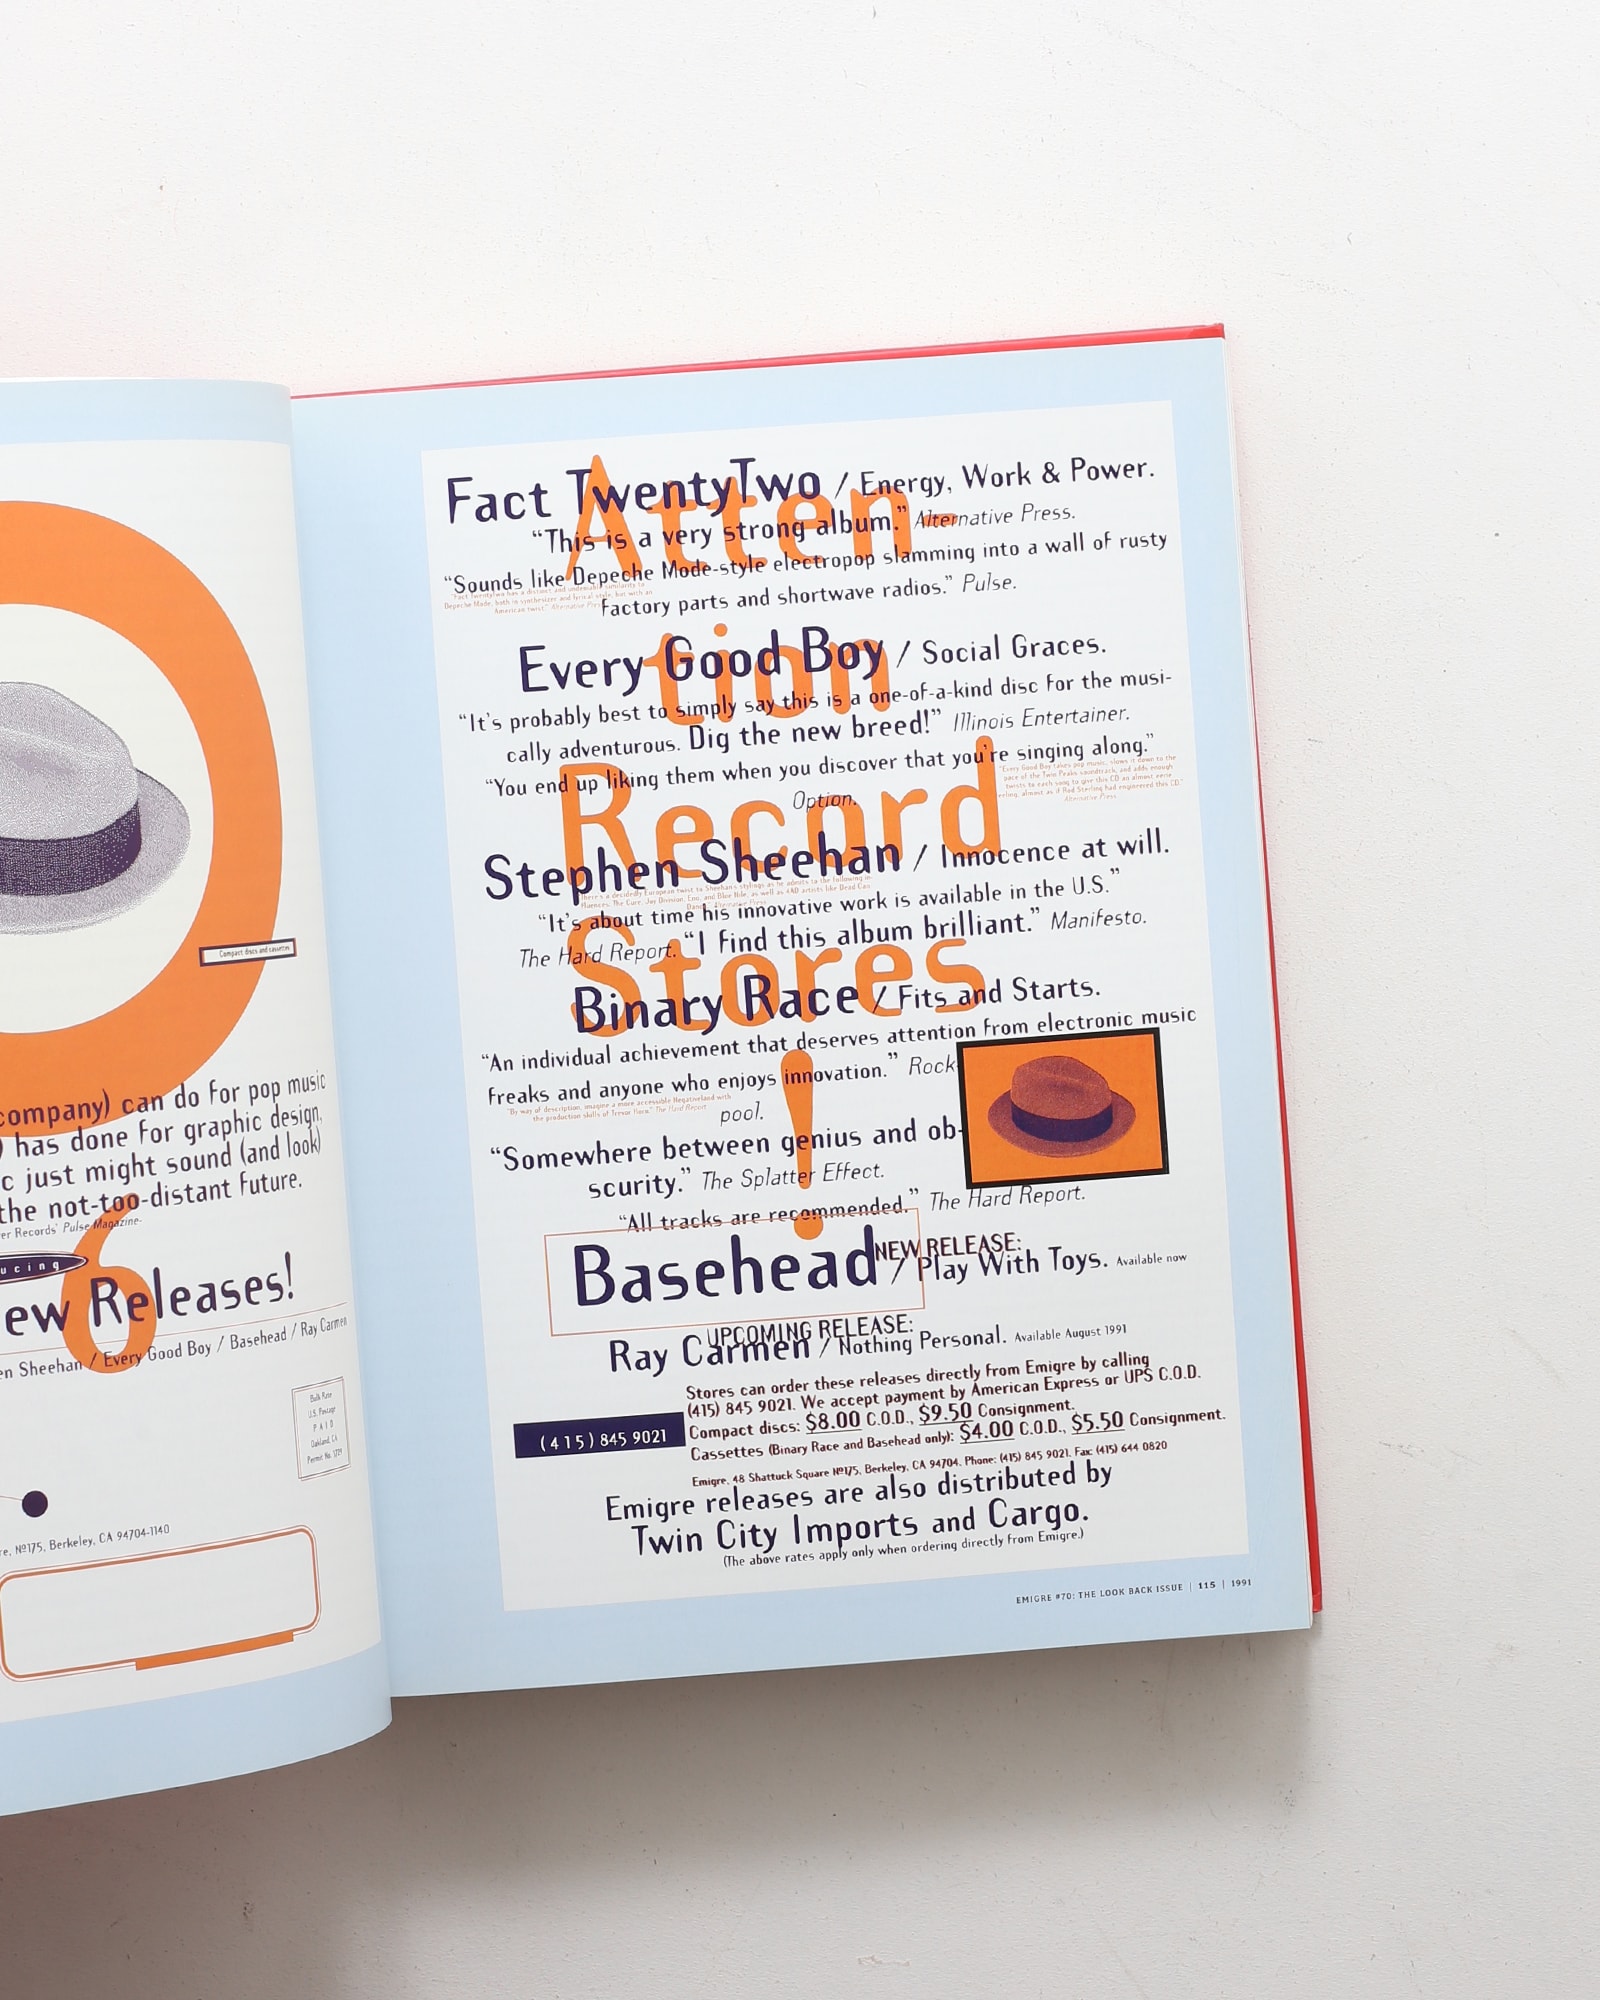 Compact discs and cassettes
company) can do for pop music
) has done for graphic design,
c just might sound (and look)
the not-too-distant future.
er Records' Pulse Magazine-
ucing
6
ew Releases!
en Sheehan / Every Good Boy / Basehead / Ray Carmen
Bulk Rate
U.S. Postage
PAID
Oakland, CA
Permit No. 1729
re, Nº175, Berkeley, CA 94704-1140
Atten-
tion
Record
Stores
!
Fact TwentyTwo / Energy, Work & Power.
“This is a very strong album.” Alternative Press.
“Sounds like Depeche Mode-style electropop slamming into a wall of rusty
factory parts and shortwave radios.” Pulse.
“Fact TwentyTwo has a distinct and undeniable similarity to
Depeche Mode, both in synthesizer and lyrical style, but with an
American twist.” Alternative Press
Every Good Boy / Social Graces.
“It's probably best to simply say this is a one-of-a-kind disc for the musi-
cally adventurous. Dig the new breed!” Illinois Entertainer.
“You end up liking them when you discover that you're singing along.”
Option.
“Every Good Boy takes pop music, slows it down to the
pace of the Twin Peaks soundtrack, and adds enough
twists to each song to give this CD an almost eerie
feeling, almost as if Rod Sterling had engineered this CD.”
Alternative Press
Stephen Sheehan / Innocence at will.
There's a decidedly European twist to Sheehan's stylings as he admits to the following in-
fluences, The Cure, Joy Division, Eno, and Blue Nile, as well as 4AD artists like Dead Can
Dance. Alternative Press
“It's about time his innovative work is available in the U.S.”
The Hard Report. “I find this album brilliant.” Manifesto.
Binary Race / Fits and Starts.
“An individual achievement that deserves attention from electronic music
freaks and anyone who enjoys innovation.” Rock-
pool.
“By way of description, imagine a more accessible Negativeland with
the production skills of Trevor Horn.” The Hard Report
“Somewhere between genius and ob-
scurity.” The Splatter Effect.
“All tracks are recommended.” The Hard Report.
NEW RELEASE:
Basehead / Play With Toys. Available now
UPCOMING RELEASE:
Ray Carmen / Nothing Personal. Available August 1991
Stores can order these releases directly from Emigre by calling
(415) 845 9021. We accept payment by American Express or UPS C.O.D.
Compact discs: $8.00 C.O.D., $9.50 Consignment.
Cassettes (Binary Race and Basehead only): $4.00 C.O.D., $5.50 Consignment.
(415) 845 9021
Emigre, 48 Shattuck Square Nº175, Berkeley, CA 94704. Phone: (415) 845 9021. Fax: (415) 644 0820
Emigre releases are also distributed by
Twin City Imports and Cargo.
(The above rates apply only when ordering directly from Emigre.)
EMIGRE #70: THE LOOK BACK ISSUE | 115 | 1991